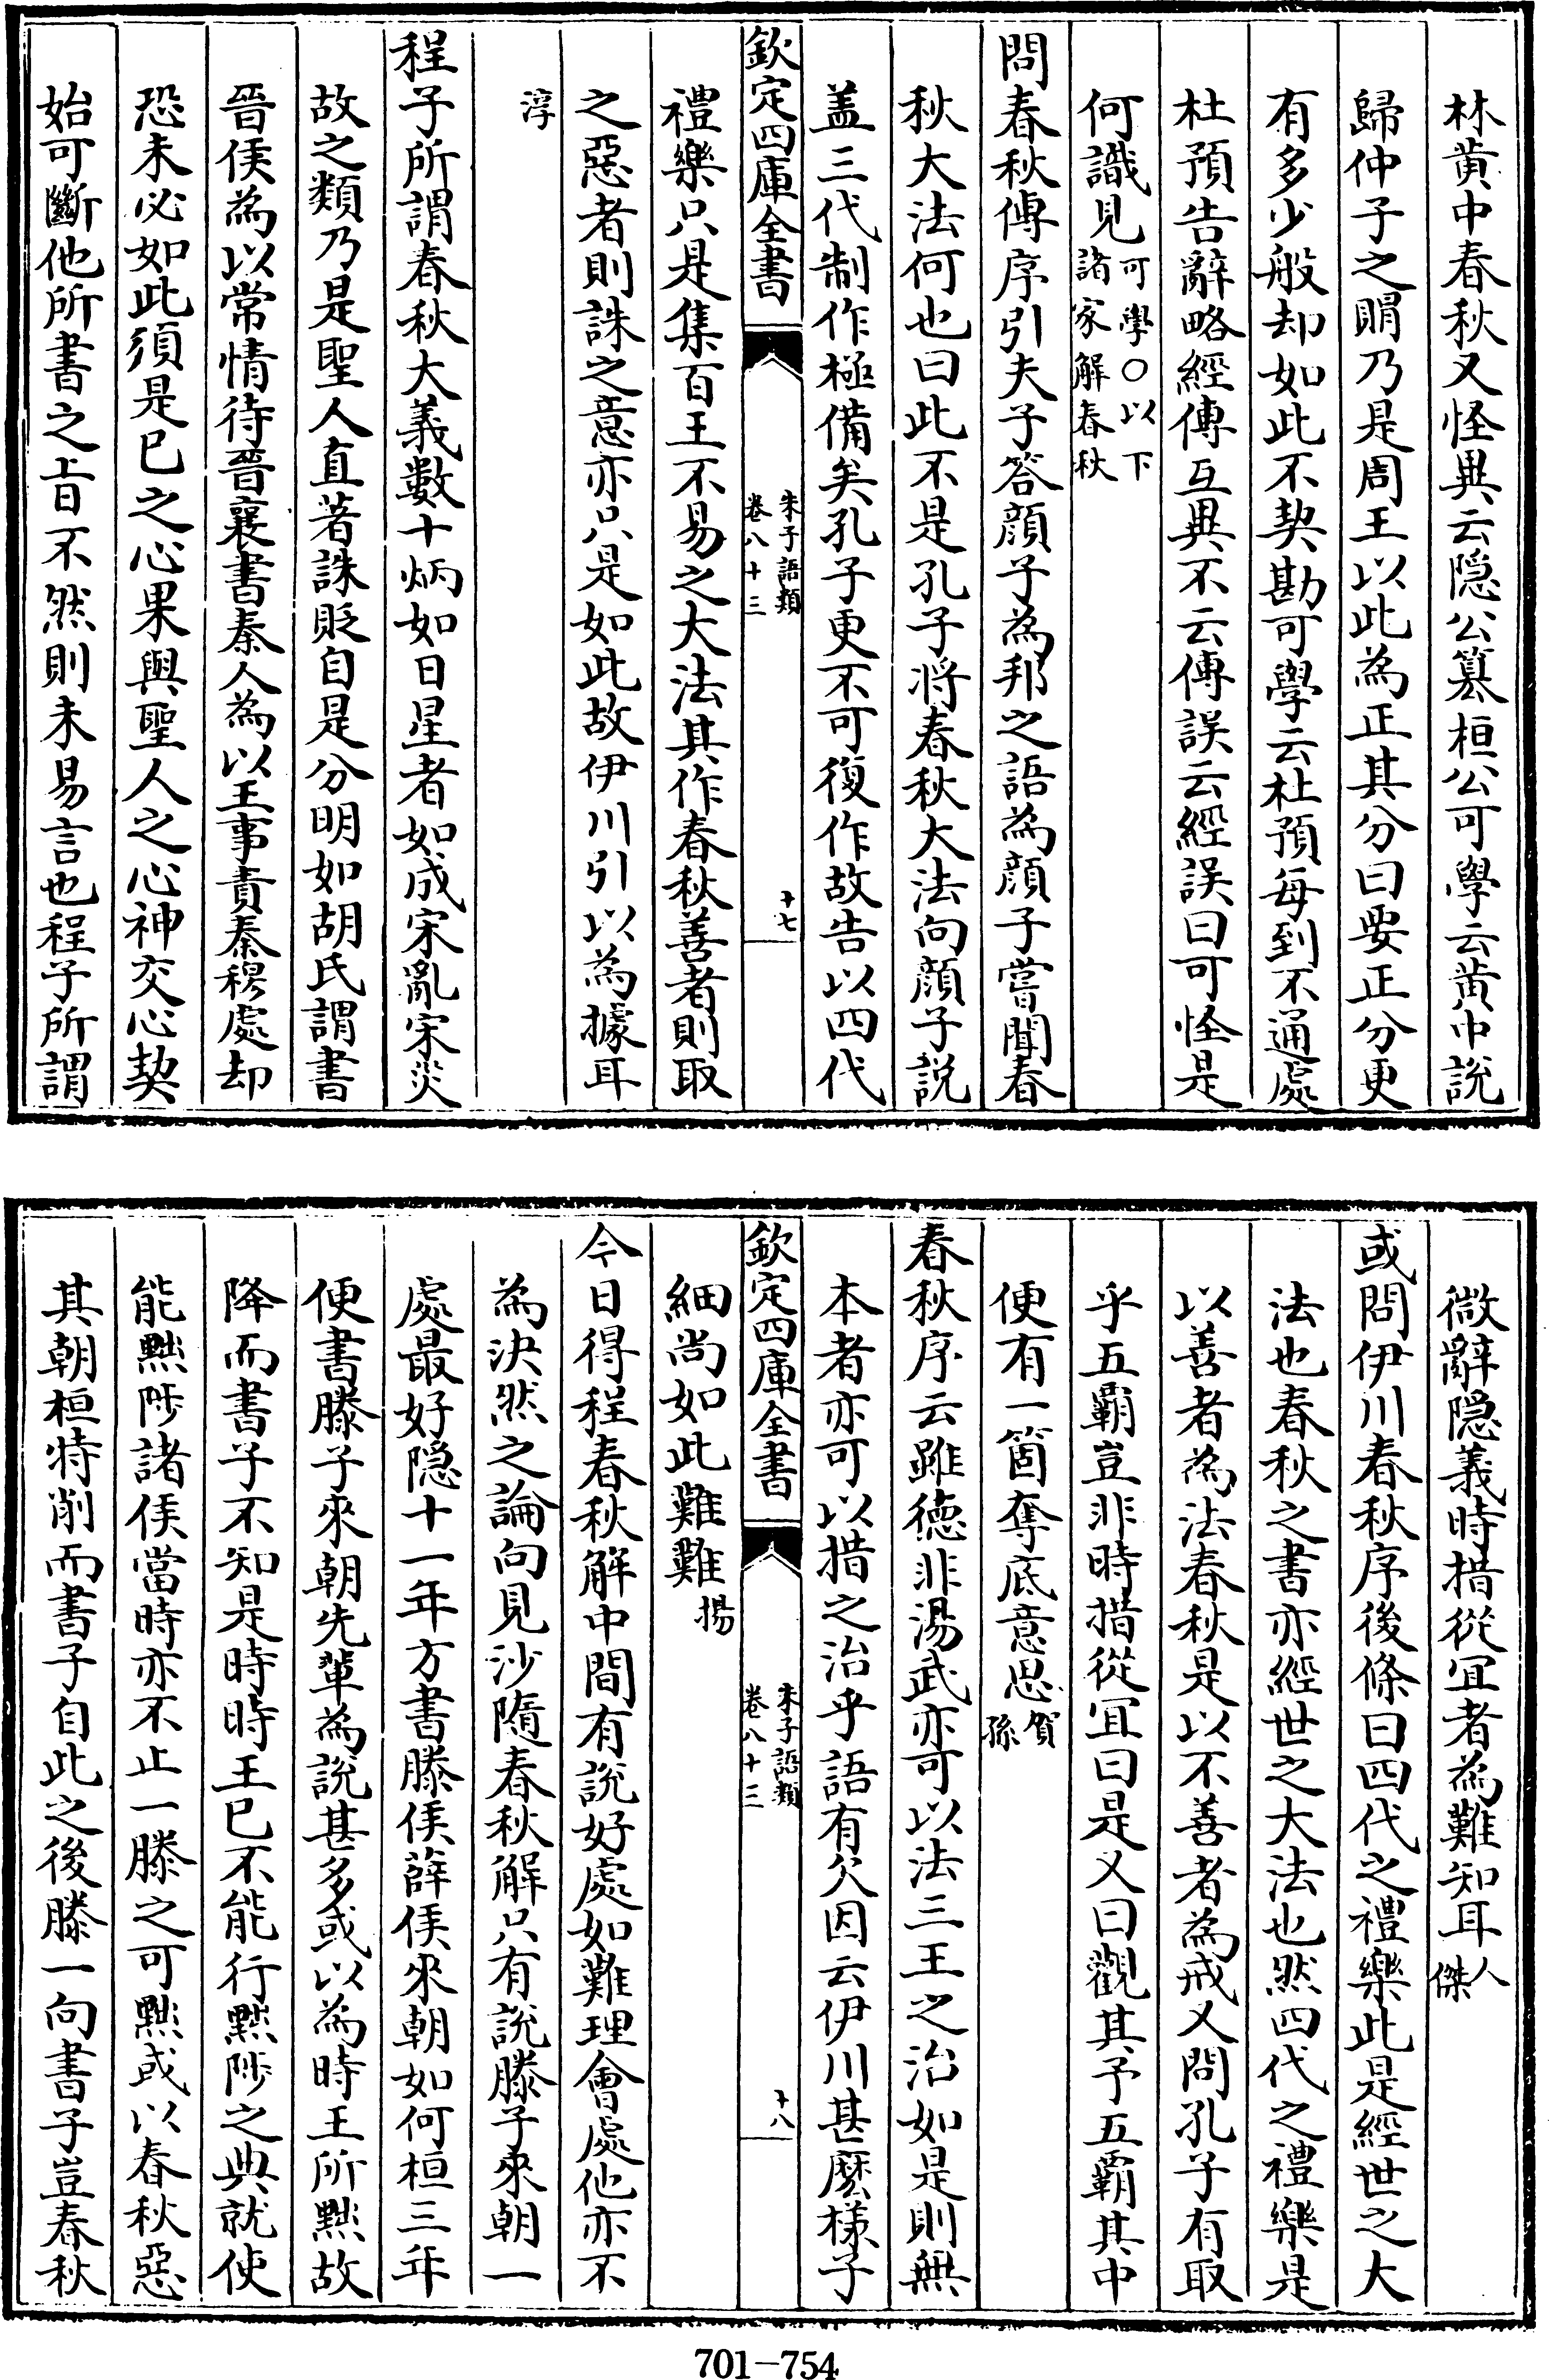 林黄中春秋又怪異云隠公簒桓公可學云黄中說
歸仲子之賵乃是周王以此為正其分曰要正分更
有多少般却如此不契勘可學云杜預每到不通處
杜預告辭略經傳互異不云傳誤云經誤曰可怪是
何識見可學○以下
諸家解春秋
問春秋傳序引夫子答顔子為邦之語為顔子嘗聞春
秋大法何也曰此不是孔子將春秋大法向顔子説
盖三代制作極備矣孔子更不可復作故告以四代
欽定四庫全書
朱子語類
卷八十三
十七
禮樂只是集百王不易之大法其作春秋善者則取
之惡者則誅之意亦只是如此故伊川引以為據耳
淳
程子所謂春秋大義數十炳如日星者如成宋亂宋災
故之類乃是聖人直著誅貶自是分明如胡氏謂書
晉侯為以常情待晉襄書秦人為以王事責秦穆處却
恐未必如此須是已之心果與聖人之心神交心契
始可斷他所書之㫖不然則未易言也程子所謂
微辭隠義時措從宜者為難知耳人
傑
或問伊川春秋序後條曰四代之禮樂此是經世之大
法也春秋之書亦經世之大法也然四代之禮樂是
以善者為法春秋是以不善者為戒又問孔子有取
乎五霸豈非時措從宜曰是又曰觀其予五霸其中
便有一箇奪底意思賀
孫
春秋序云雖德非湯武亦可以法三王之治如是則無
本者亦可以措之治乎語有欠因云伊川甚麽様子
欽定四庫全書
朱子語類
卷八十三
十八
細尚如此難難揚
今日得程春秋解中間有說好處如難理會處他亦不
為決然之論向見沙隨春秋解只有說滕子來朝一
處最好隠十一年方書滕侯薛侯來朝如何桓三年
便書滕子來朝先輩為說甚多或以為時王所黜故
降而書子不知是時時王已不能行黜陟之典就使
能黜陟諸侯當時亦不止一滕之可黜或以春秋惡
其朝桓特削而書子自此之後滕一向書子豈春秋
701-754